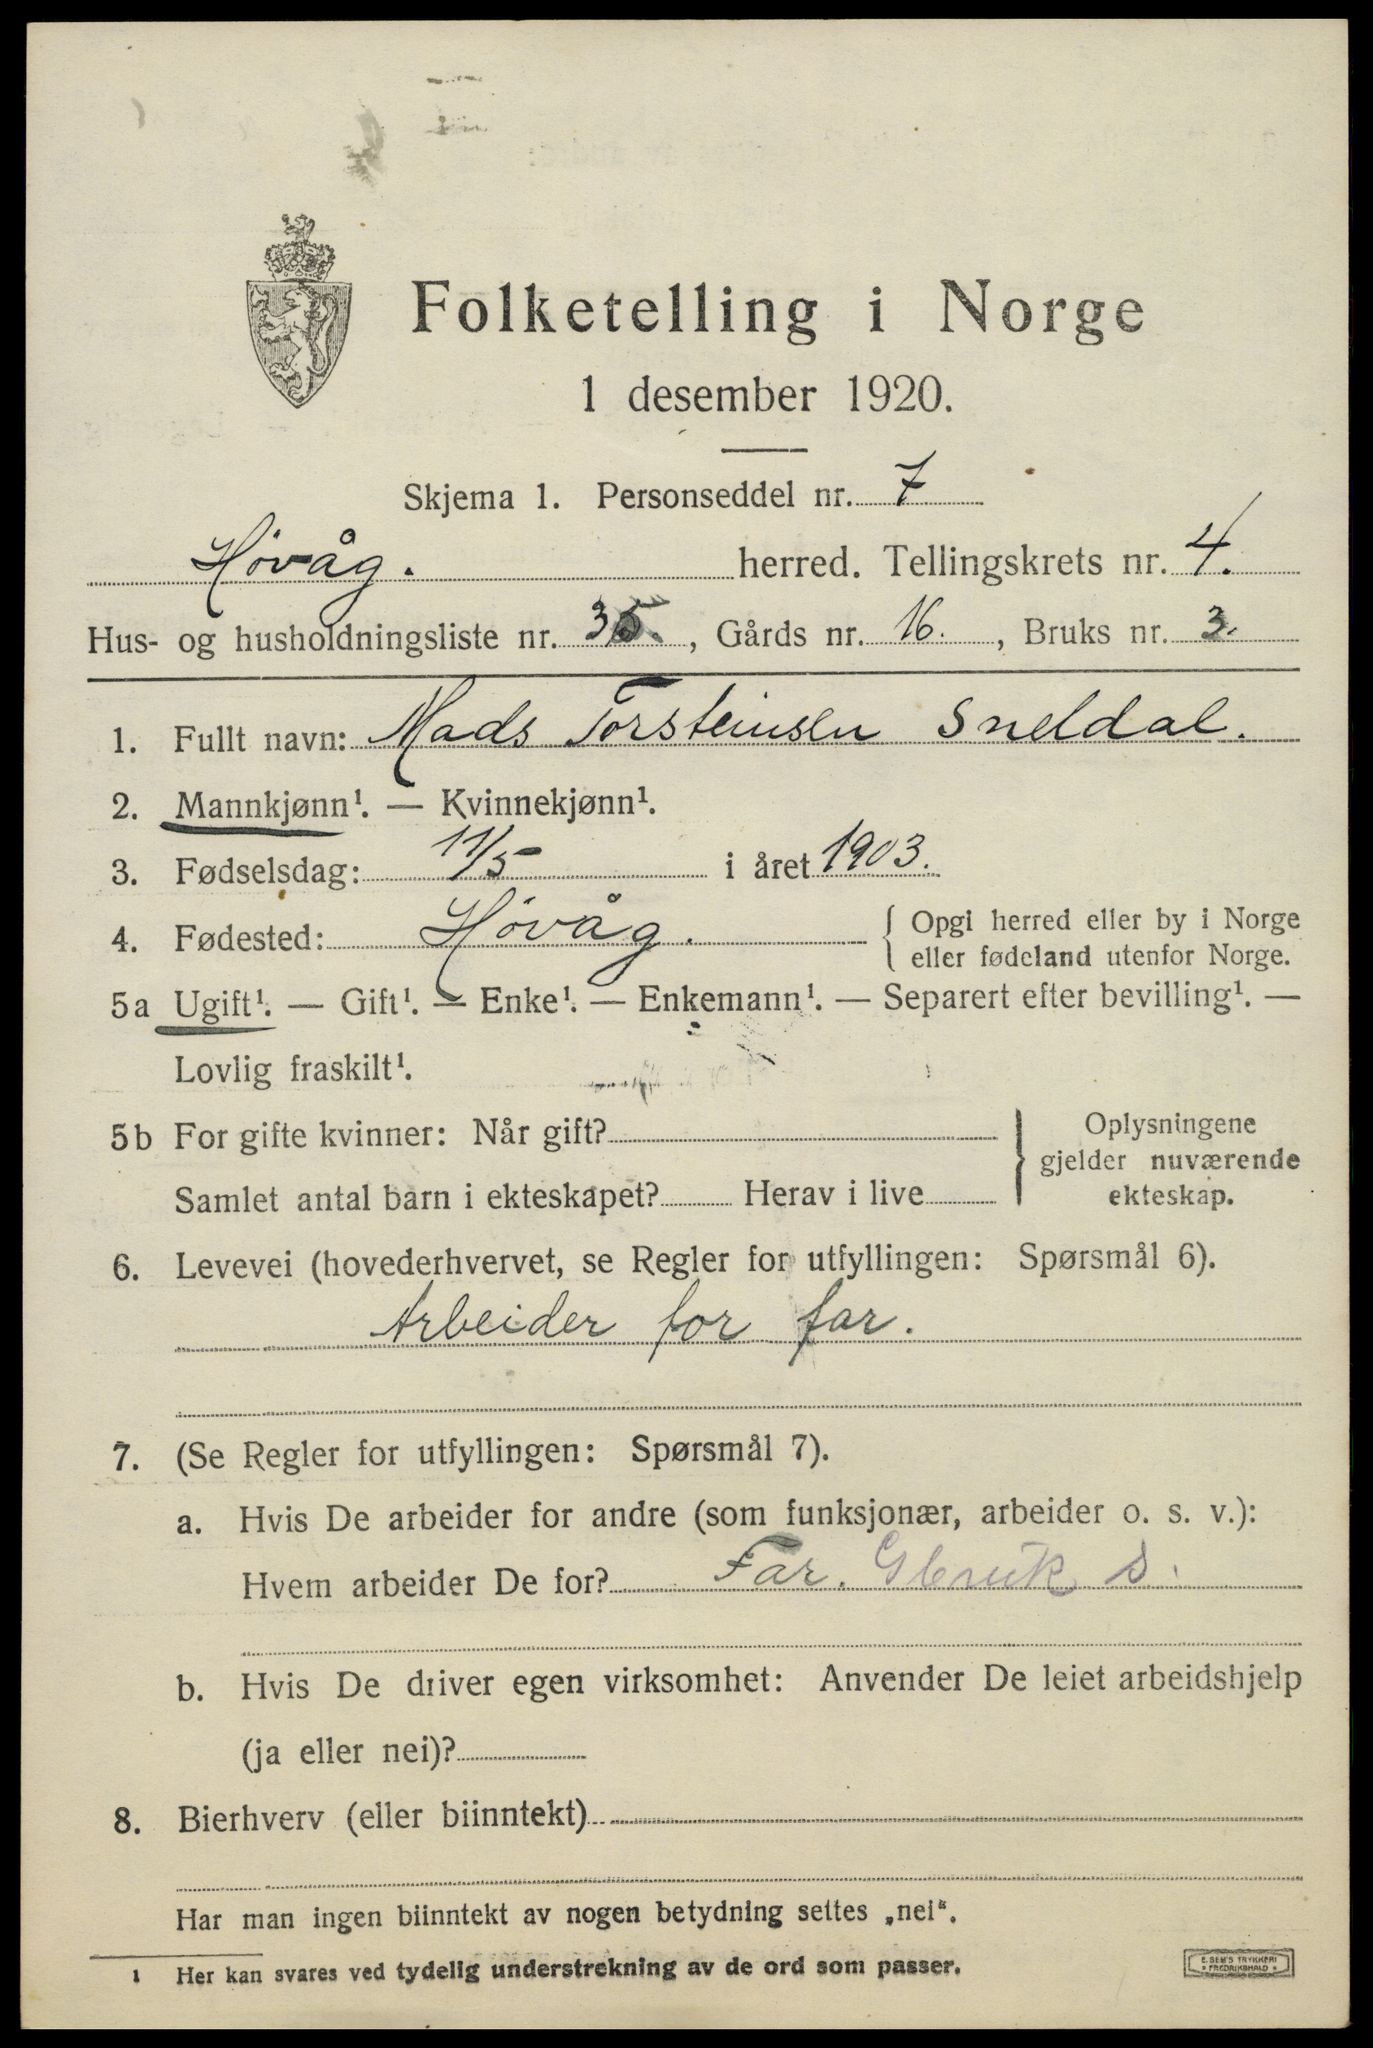 Folketelling i Norge
1 desember 1920.
Skjema 1. Personseddel nr. 7
Høvåg. herred. Tellingskrets nr. 4.
Hus- og husholdningsliste nr. 35., Gårds nr. 16., Bruks nr. 3.
1. Fullt navn: Mads Torsteinsen Sneldal.
2. Mannkjønn¹. — Kvinnekjønn¹.
3. Fødselsdag: 11/5 i året 1903.
4. Fødested: Høvåg. { Opgi herred eller by i Norge
eller fødeland utenfor Norge.
5a Ugift¹. — Gift¹. — Enke¹. — Enkemann¹. — Separert efter bevilling¹. —
Lovlig fraskilt¹.
5b For gifte kvinner: Når gift?
Samlet antal barn i ekteskapet? Herav i live
} Oplysningene
gjelder nuværende
ekteskap.
6. Levevei (hovederhvervet, se Regler for utfyllingen: Spørsmål 6).
Arbeider for far.
7. (Se Regler for utfyllingen: Spørsmål 7).
a. Hvis De arbeider for andre (som funksjonær, arbeider o. s. v.):
Hvem arbeider De for? Far. Gbruk S.
b. Hvis De driver egen virksomhet: Anvender De leiet arbeidshjelp
(ja eller nei)?
8. Bierhverv (eller biinntekt)
Har man ingen biinntekt av nogen betydning settes „nei“.
1 Her kan svares ved tydelig understrekning av de ord som passer.
E. SEM'S TRYKKERI
* FREDRIKSHALD *